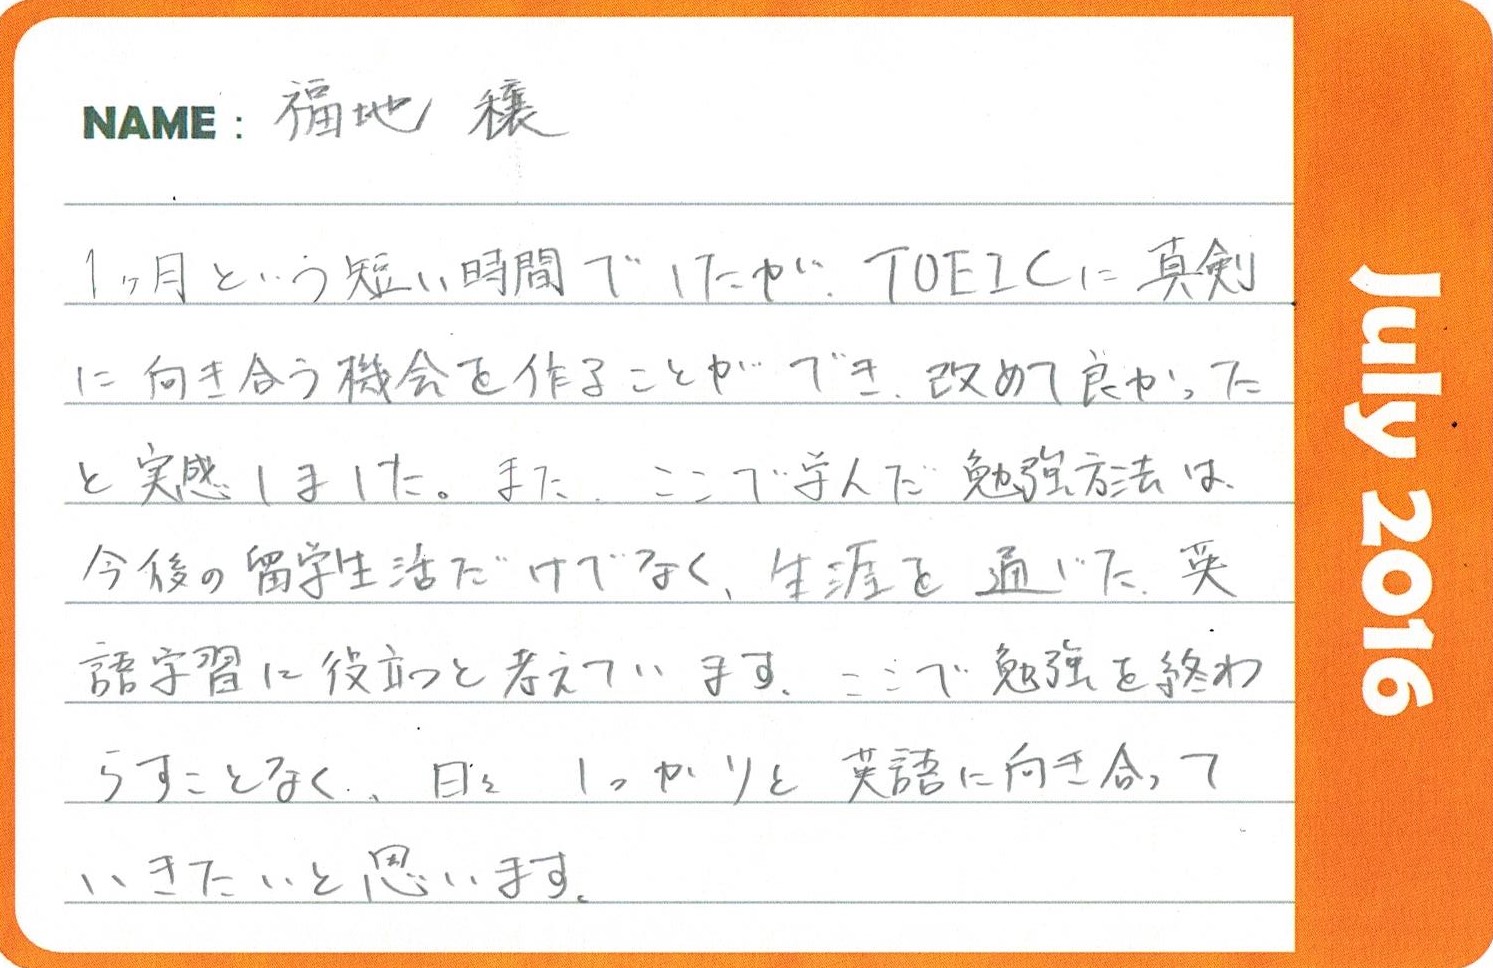 NAME: 福地 穣
1ヶ月という短い時間でしたが、TOEICに真剣
に向き合う機会を作ることができ、改めて良かった
と実感しました。また、ここで学んだ勉強方法は、
今後の留学生活だけでなく、生涯を通じた、英
語学習に役立つと考えています。ここで勉強を終わ
らすことなく、日々 しっかりと英語に向き合って
いきたいと思います。
July 2016